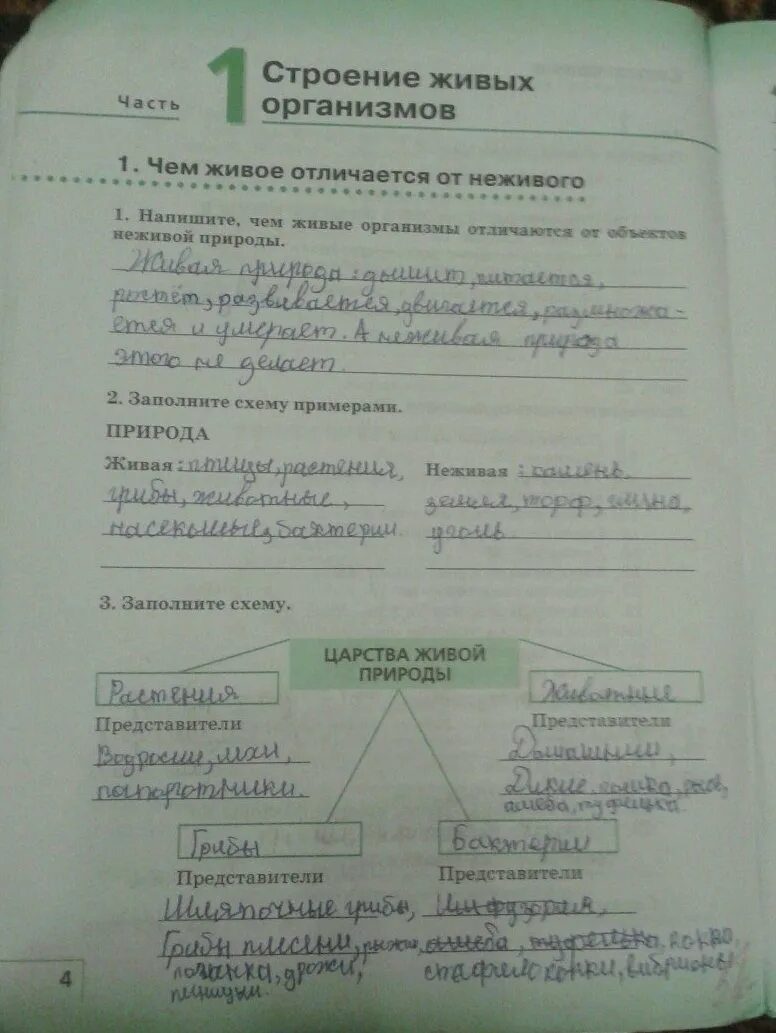 Часть 1 Строение живых
организмов
1. Чем живое отличается от неживого
1. Напишите, чем живые организмы отличаются от объектов
неживой природы.
Живая природа: дышит, питается,
ростёт, развивается, двигается, размножа-
ется и умерает. А неживая природа
этого не делает.
2. Заполните схему примерами.
ПРИРОДА
Живая: птицы, растения,
грибы, животные,
насекомые, бактерии.
Неживая: камень,
земля, торф, глина,
уголь.
3. Заполните схему.
ЦАРСТВА ЖИВОЙ
ПРИРОДЫ
Растения
Представители
Водросли, мхи,
папоротники.
Животные
Представители
Домашнии,
Дикие, кошка, рысь,
амёба, туфелька.
Грибы
Представители
Шляпочные грибы,
Грибы плесени, рыжик,
поганка, дрожи,
пеницилл.
Бактерии
Представители
Инфузория,
амёба, туфелька, кокко,
стафелококки, вибрионы
4